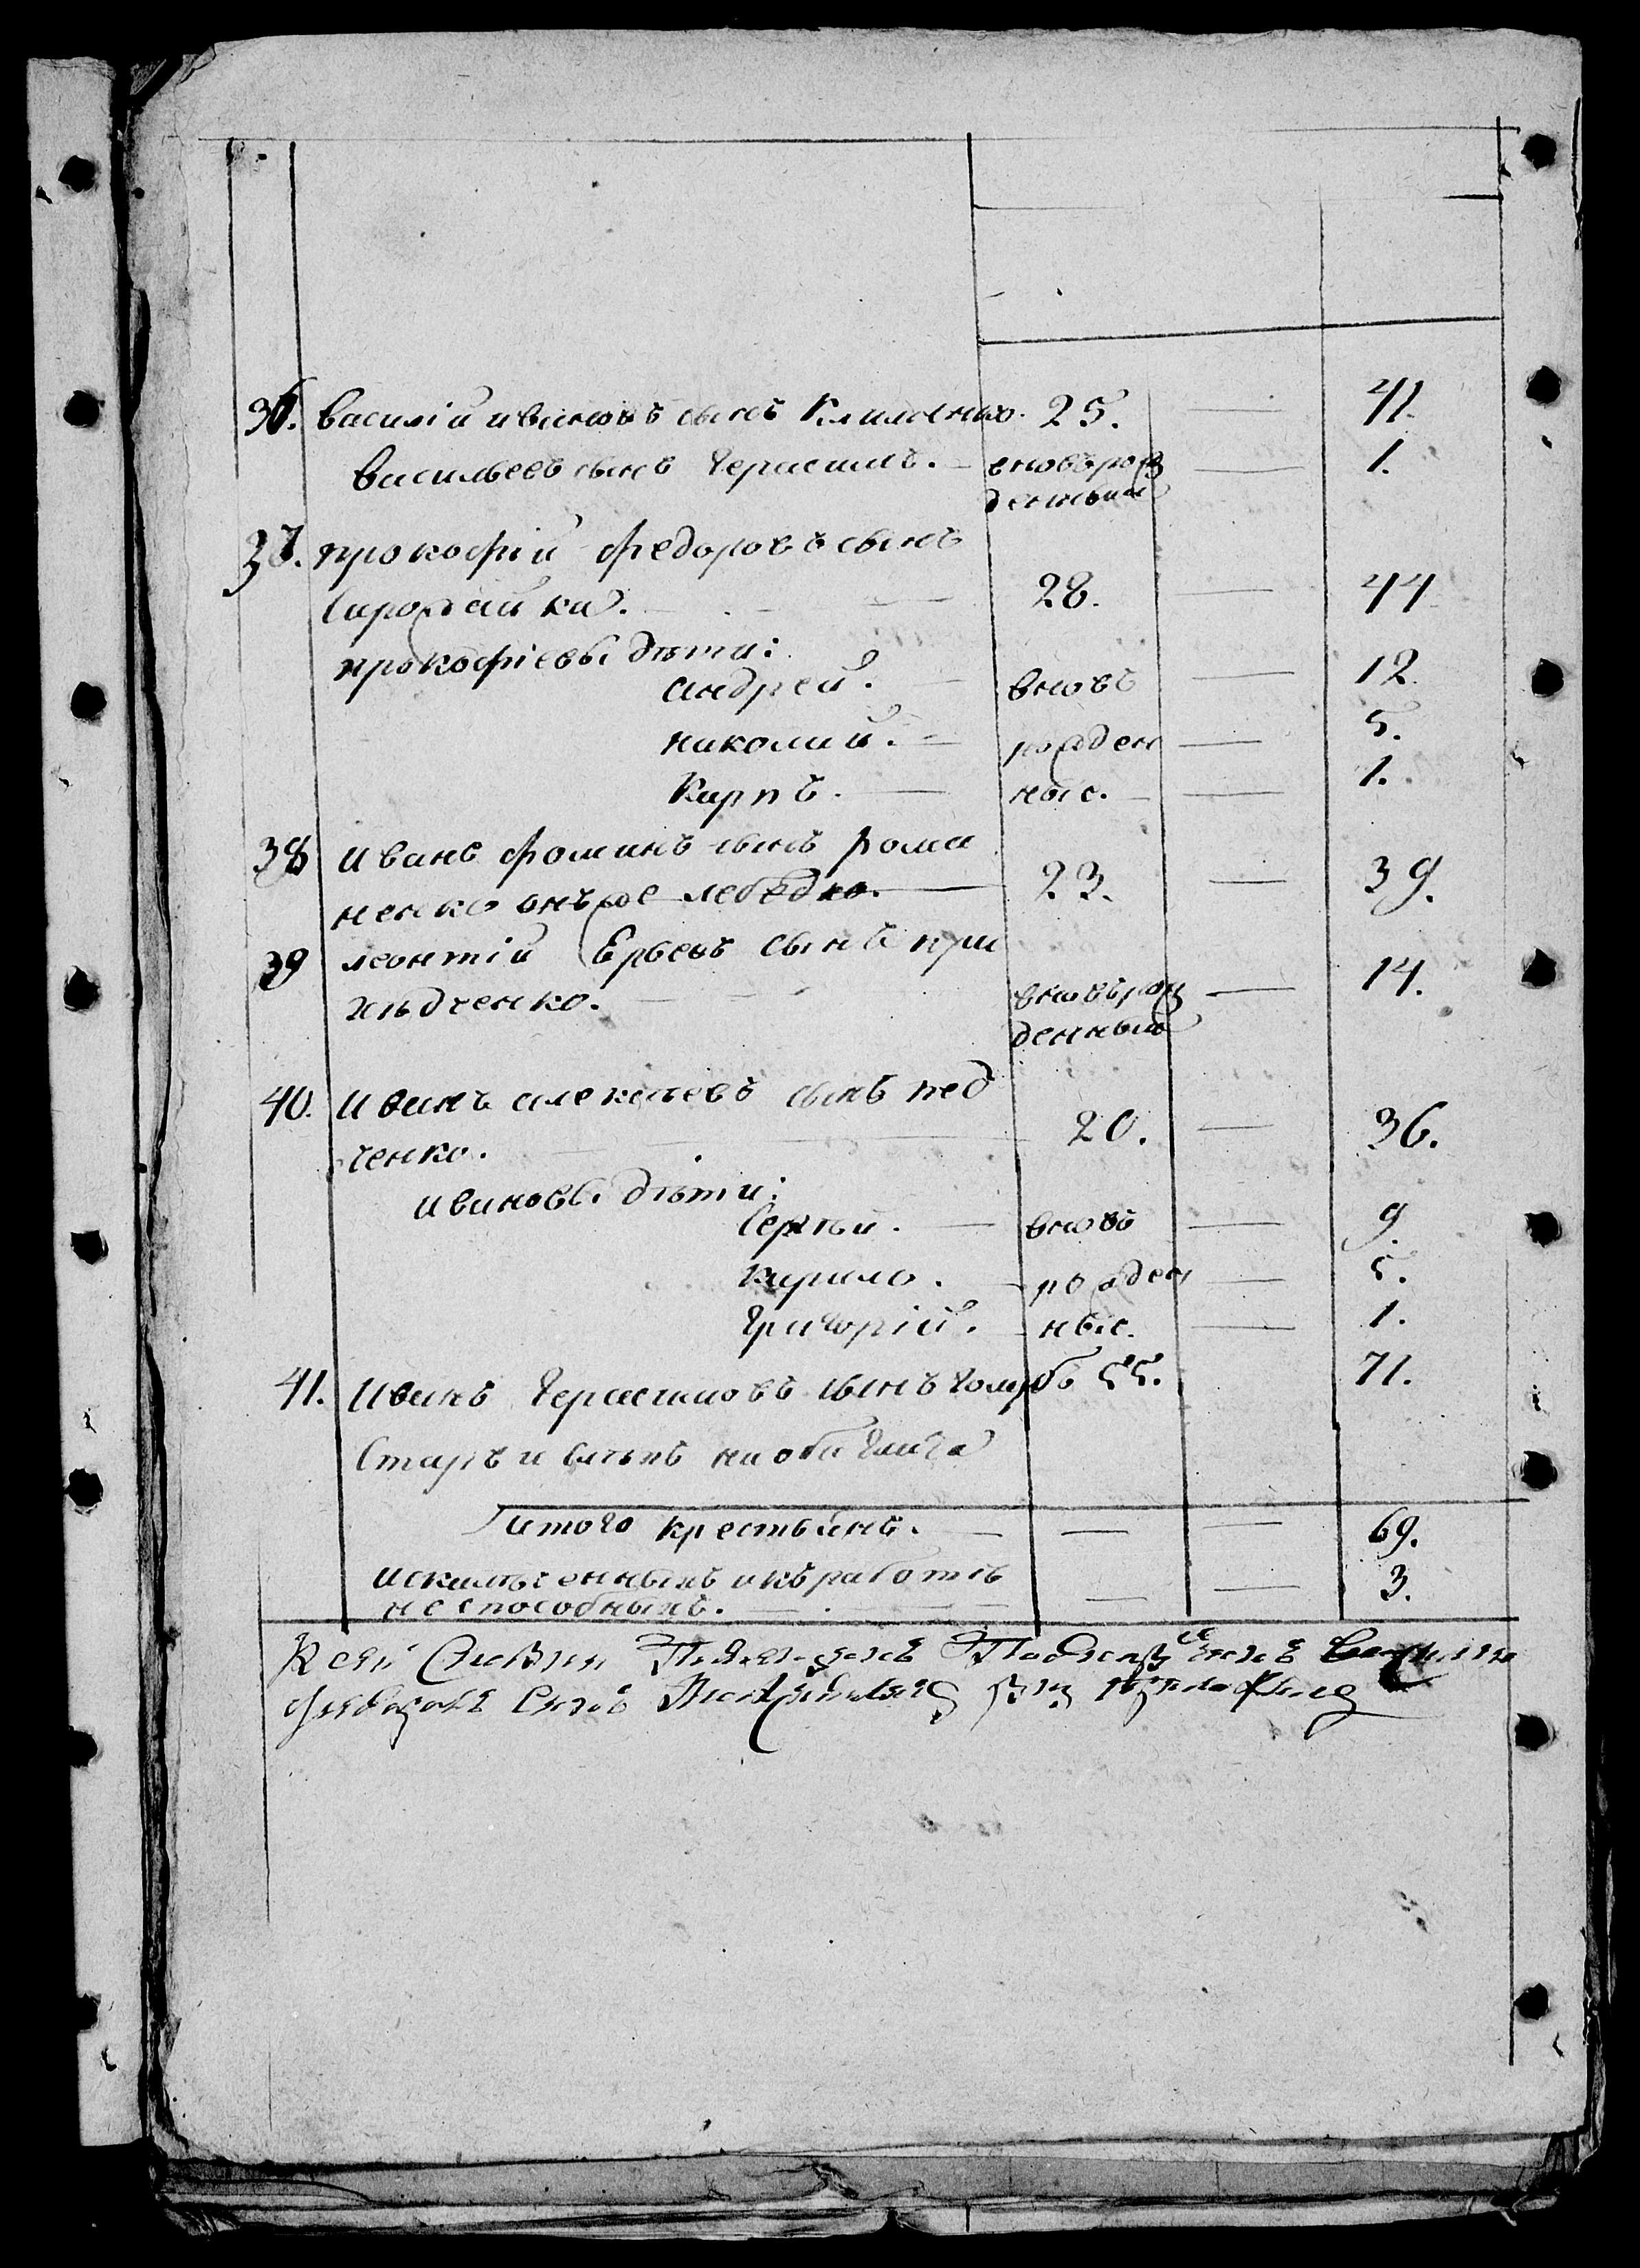 36. василій ивановъ сынъ Клименко. 25. — 41.
васильевъ сынъ Герасимъ. — вновърож — 1.
денный
37. прокофій федоровъ сынъ
Сирожайка. — 28. — 44
прокофіевы дѣти:
андрей. — вновь — 12.
николай. — рожден — 5.
Карпъ. — ные. — 1.
38 иванъ фоминъ сынъ рома
ненко онъже лебедко. — 23. — 39.
39 леонтій сынъ при
ходченко. — вновърож — 14.
денный
40. иванъ алексѣевъ сынъ пед
ченко. — 20. — 36.
ивановы дѣти:
Сергѣй. — вновь — 9.
Кирило. — рожден — 5.
Григорій. — ные. — 1.
41. иванъ Герасимовъ сынъ голубъ 55. 71.
Старъ и слѣпъ на оба глаза
итого крестьянъ. — — — 69.
искалѣченныхъ икъработѣ
неспособныхъ. — — — 3.